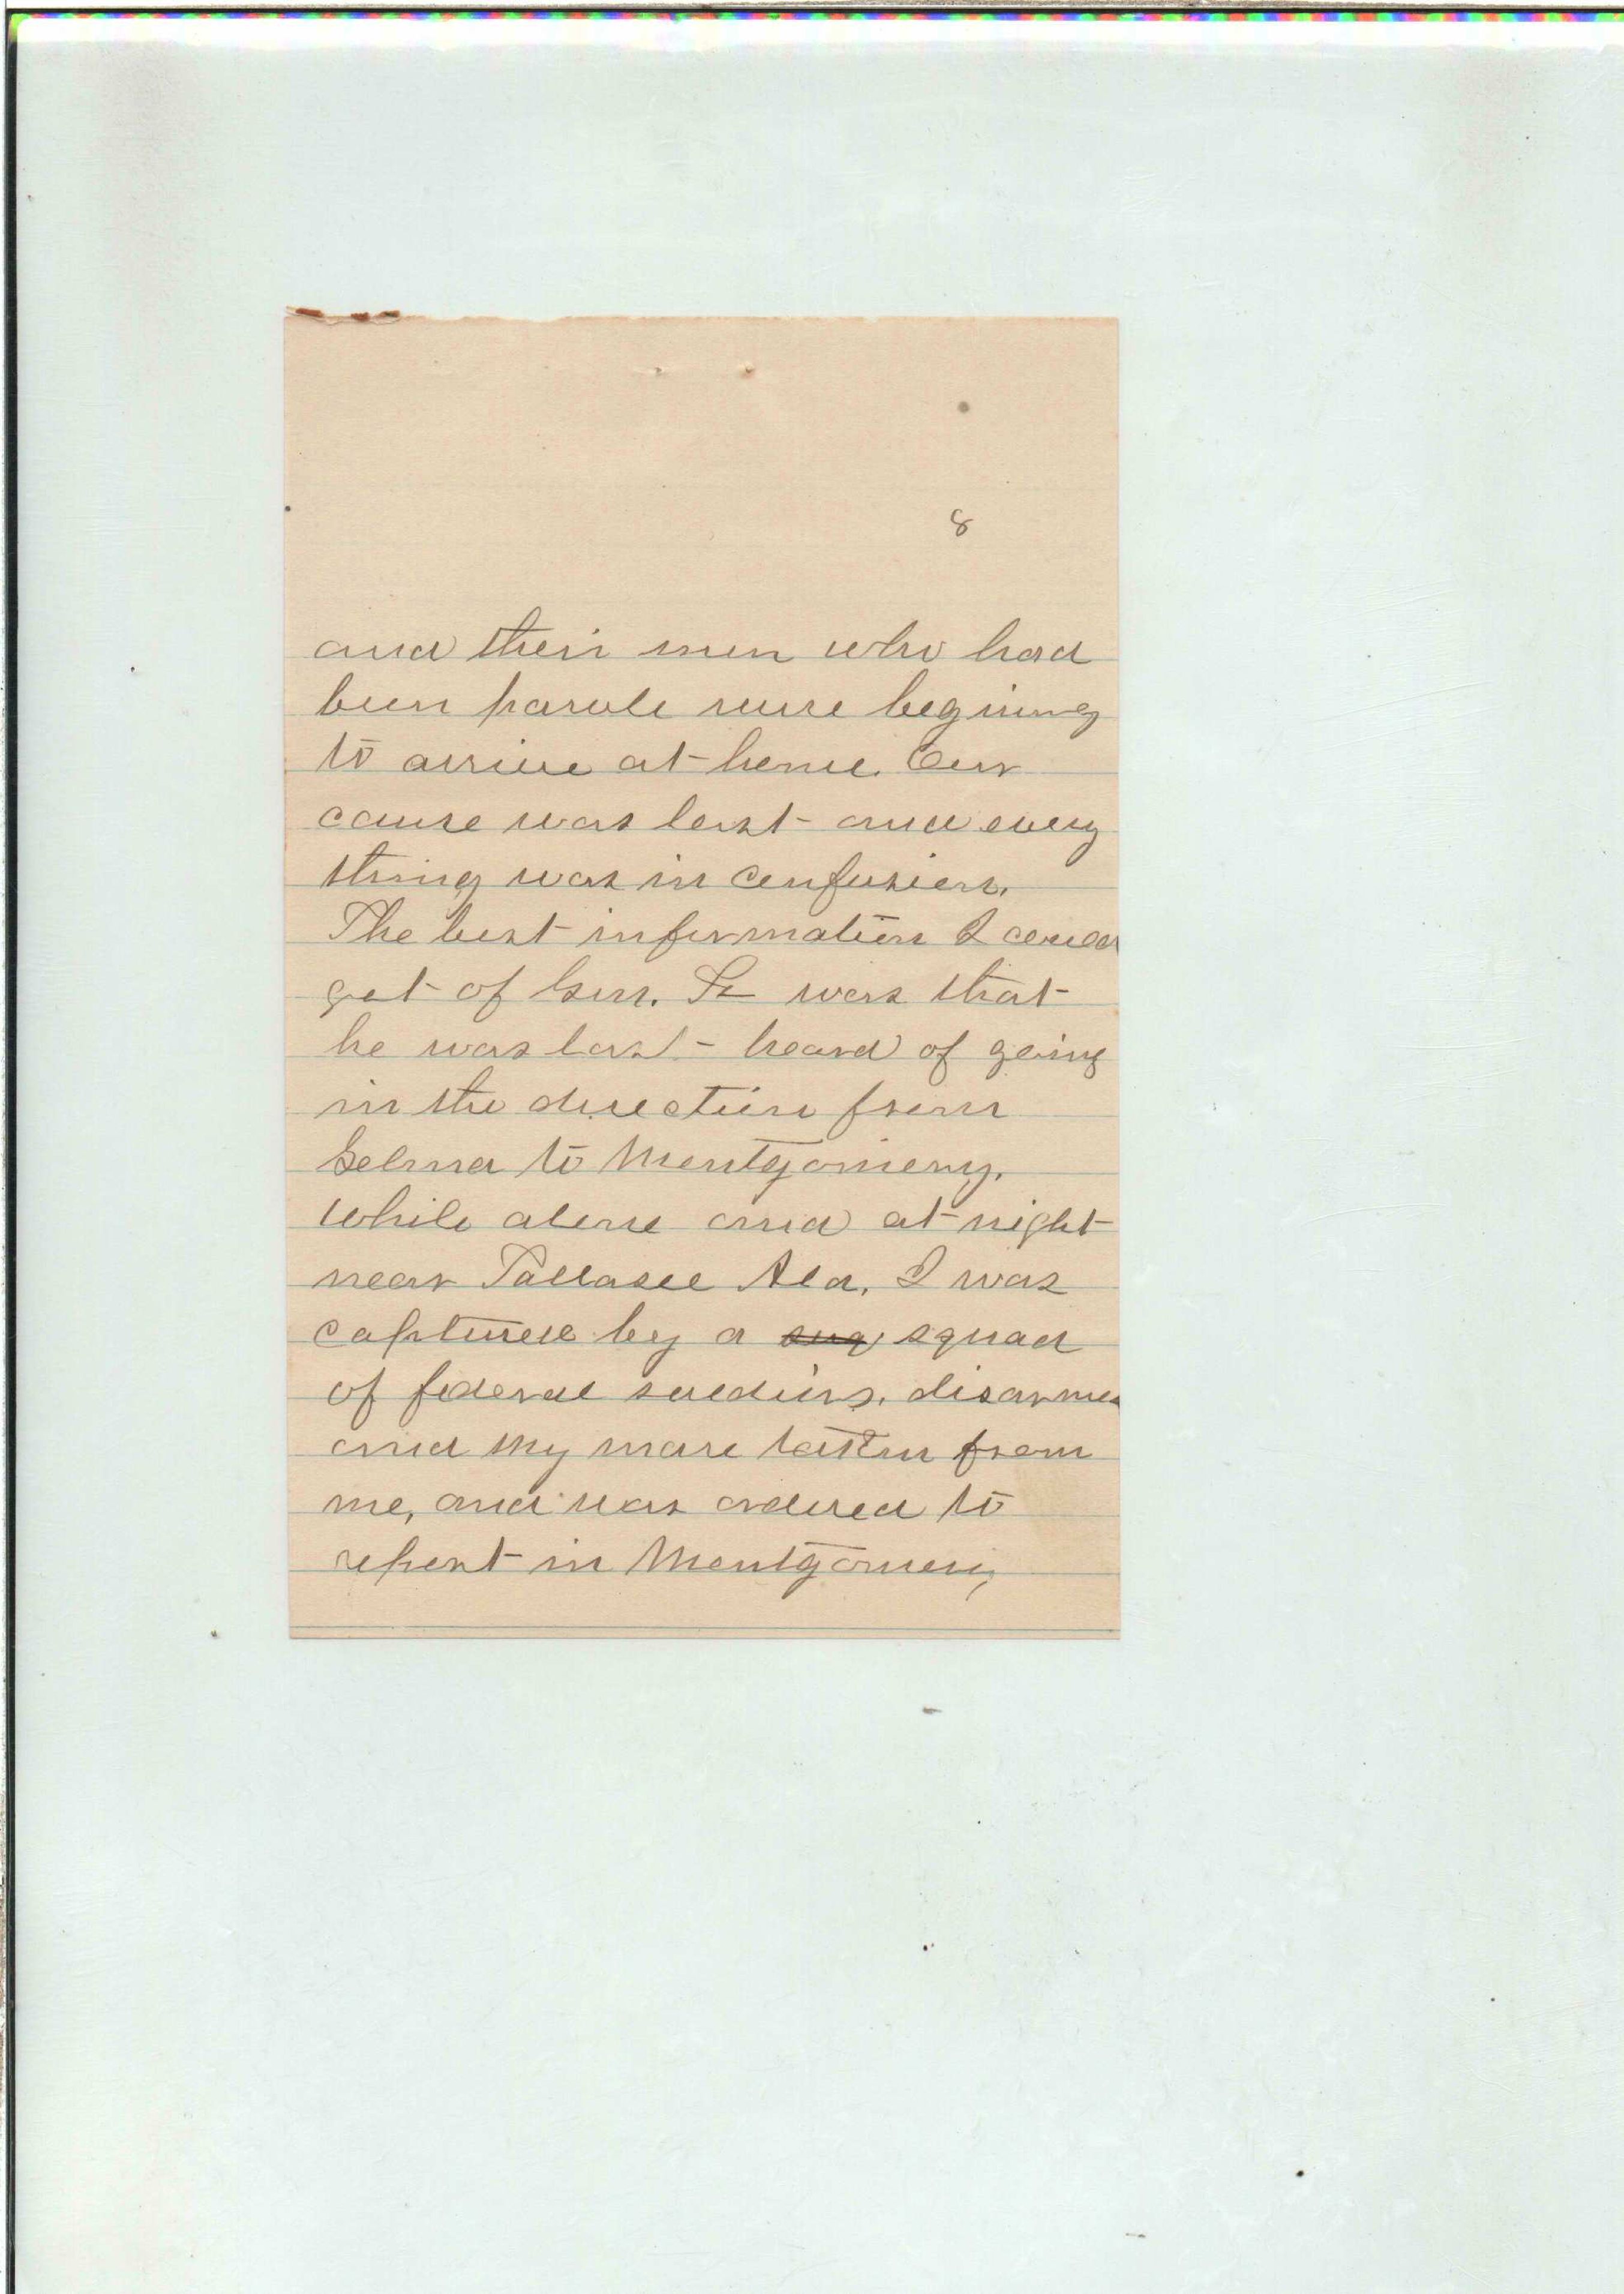 8
and their men who had
been parole were begining
to arrive at home. Our
cause was lost and every
thing was in confusion.
The best information I could
get of Gen. was that
he was last heard of going
in the direction from
Selma to Montgomery.
While alone and at night
near Tallasee Ala, I was
captured by a squad
of federal soldiers, disarmed
and my mare taken from
me, and was ordered to
report in Montgomery,